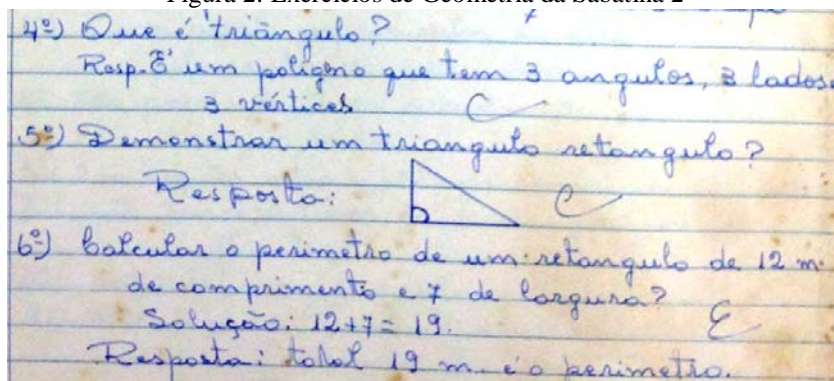 Figura 2: Exercícios de Geometria da Sabatina 2
4º) Que é triângulo?
Resp. É um polígono que tem 3 angulos, 3 lados
3 vértices C
5º) Demonstrar um triangulo retangulo?
Resposta: C
6º) Calcular o perimetro de um retangulo de 12 m.
de comprimento e 7 de largura?
Solução: 12+7=19. E
Resposta: total 19 m é o perimetro.